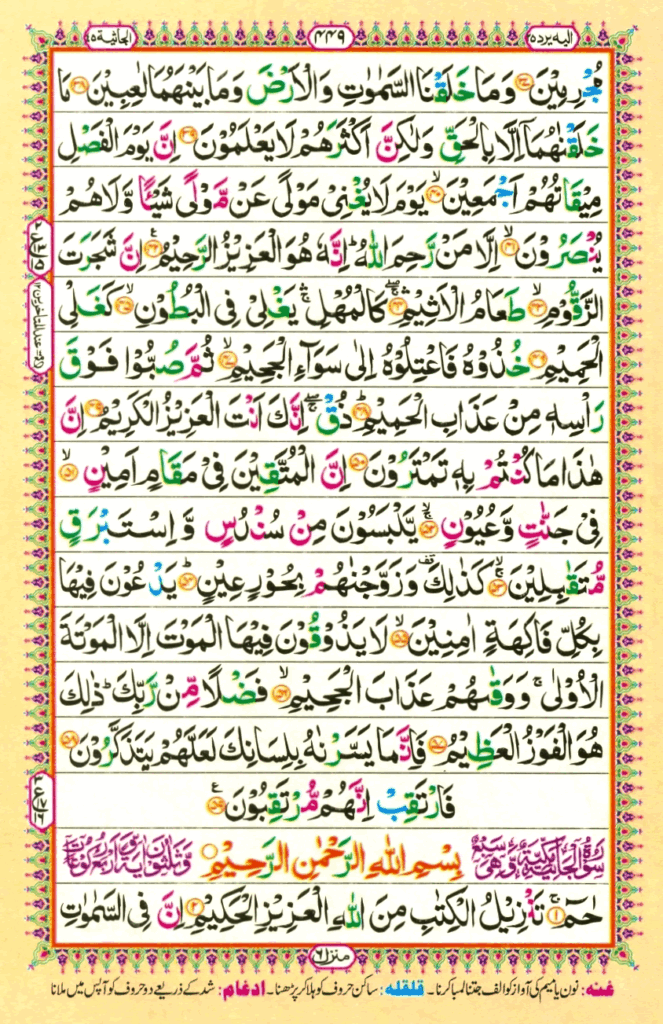 الیه یرده ۲۵
۴۴۹
الجاثیة ۴۵
مُجْرِمِيْنَ ﴿۳۷﴾ وَمَا خَلَقْنَا السَّمٰوٰتِ وَالْاَرْضَ وَمَا بَيْنَهُمَا لٰعِبِيْنَ ﴿۳۸﴾ مَا
خَلَقْنٰهُمَاۤ اِلَّا بِالْحَقِّ وَلٰكِنَّ اَكْثَرَهُمْ لَا يَعْلَمُوْنَ ﴿۳۹﴾ اِنَّ يَوْمَ الْفَصْلِ
مِيْقَاتُهُمْ اَجْمَعِيْنَ ﴿۴۰﴾ يَوْمَ لَا يُغْنِيْ مَوْلًى عَنْ مَّوْلًى شَيْـًٔا وَّلَا هُمْ
يُنْصَرُوْنَ ﴿۴۱﴾ اِلَّا مَنْ رَّحِمَ اللّٰهُ ؕ اِنَّهٗ هُوَ الْعَزِيْزُ الرَّحِيْمُ ﴿۴۲﴾ اِنَّ شَجَرَتَ
الزَّقُّوْمِ ﴿۴۳﴾ طَعَامُ الْاَثِيْمِ ﴿۴۴﴾ كَالْمُهْلِ ۛۚ يَغْلِيْ فِي الْبُطُوْنِ ﴿۴۵﴾ كَغَلْيِ
الْحَمِيْمِ ﴿۴۶﴾ خُذُوْهُ فَاعْتِلُوْهُ اِلٰى سَوَآءِ الْجَحِيْمِ ﴿۴۷﴾ ثُمَّ صُبُّوْا فَوْقَ
رَاْسِهٖ مِنْ عَذَابِ الْحَمِيْمِ ﴿۴۸﴾ ذُقْ ۙۚ اِنَّكَ اَنْتَ الْعَزِيْزُ الْكَرِيْمُ ﴿۴۹﴾ اِنَّ
هٰذَا مَا كُنْتُمْ بِهٖ تَمْتَرُوْنَ ﴿۵۰﴾ اِنَّ الْمُتَّقِيْنَ فِيْ مَقَامٍ اَمِيْنٍ ﴿۵۱﴾
فِيْ جَنّٰتٍ وَّعُيُوْنٍ ﴿۵۲﴾ يَّلْبَسُوْنَ مِنْ سُنْدُسٍ وَّاِسْتَبْرَقٍ
مُّتَقٰبِلِيْنَ ﴿۵۳﴾ كَذٰلِكَ ۫ وَزَوَّجْنٰهُمْ بِحُوْرٍ عِيْنٍ ﴿۵۴﴾ يَدْعُوْنَ فِيْهَا
بِكُلِّ فَاكِهَةٍ اٰمِنِيْنَ ﴿۵۵﴾ لَا يَذُوْقُوْنَ فِيْهَا الْمَوْتَ اِلَّا الْمَوْتَةَ
الْاُوْلٰى ۚ وَوَقٰىهُمْ عَذَابَ الْجَحِيْمِ ﴿۵۶﴾ فَضْلًا مِّنْ رَّبِّكَ ؕ ذٰلِكَ
هُوَ الْفَوْزُ الْعَظِيْمُ ﴿۵۷﴾ فَاِنَّمَا يَسَّرْنٰهُ بِلِسَانِكَ لَعَلَّهُمْ يَتَذَكَّرُوْنَ ﴿۵۸﴾
فَارْتَقِبْ اِنَّهُمْ مُّرْتَقِبُوْنَ ﴿۵۹﴾
سُوْرَةُ الْجَاثِيَةِ مَكِّيَّةٌ وَّهِيَ بِسْمِ اللّٰهِ الرَّحْمٰنِ الرَّحِيْمِ وَّثَلٰثُوْنَ اٰيَةً
حٰمٓ ﴿۱﴾ تَنْزِيْلُ الْكِتٰبِ مِنَ اللّٰهِ الْعَزِيْزِ الْحَكِيْمِ ﴿۲﴾ اِنَّ فِي السَّمٰوٰتِ
منزل ۶
غنه: نون یا میم کی آواز کو الف جتنا لمبا کرنا۔ قلقله: ساکن حروف کو ہلا کر پڑھنا۔ ادغام: شد کے ذریعے دو حروف کو آپس میں ملانا